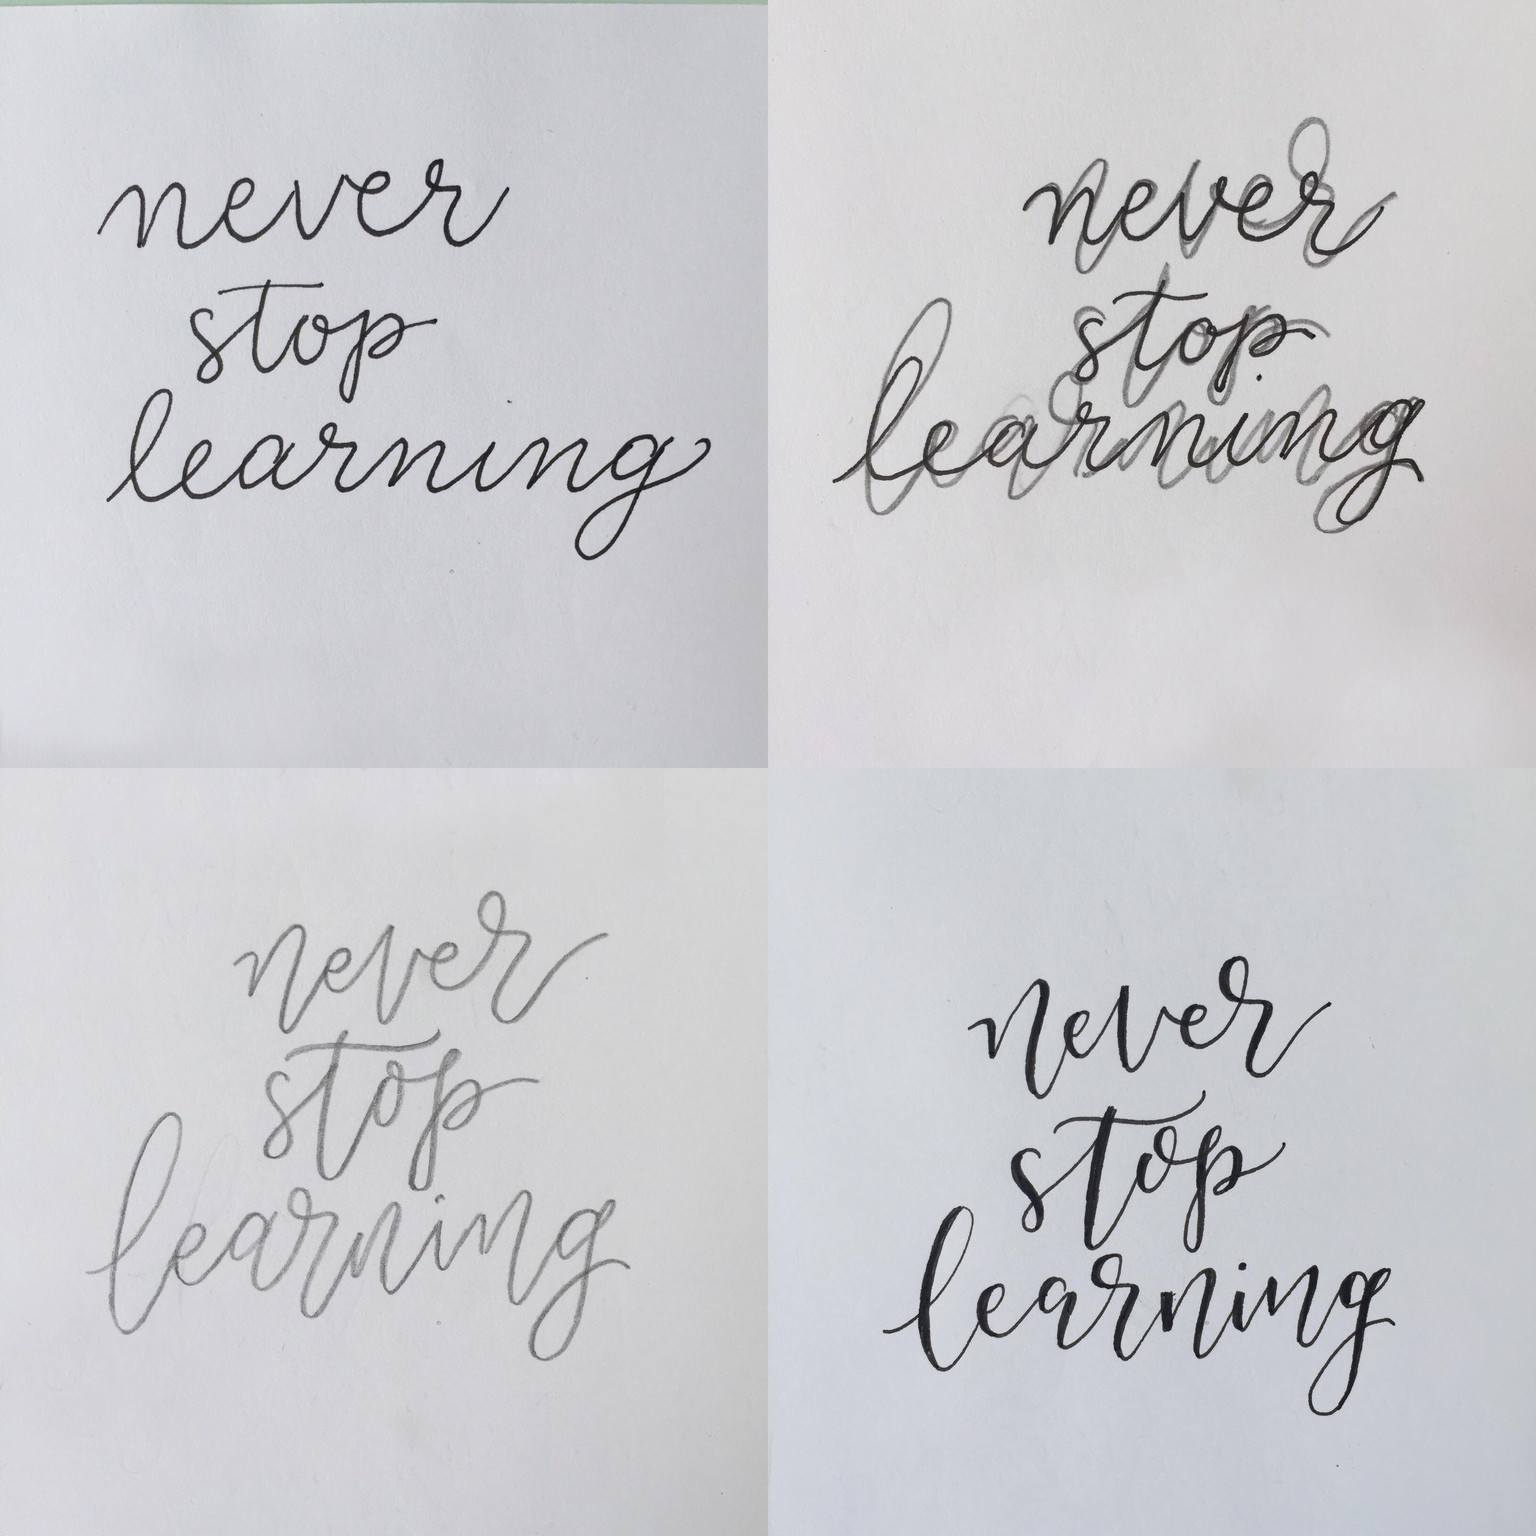 never
stop
learning
never
stop
learning
never
stop
learning
never
stop
learning